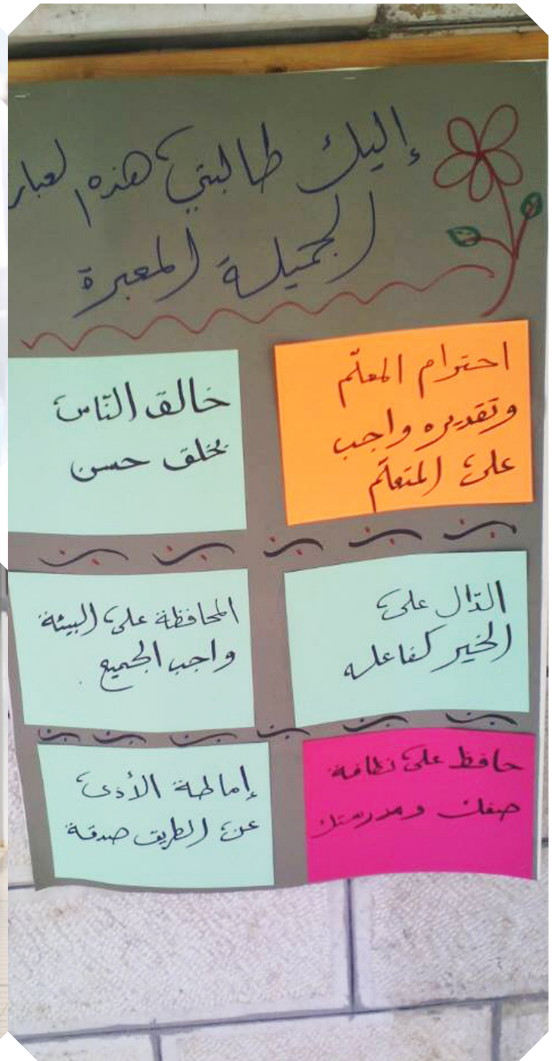 إليك طالبتي هذه العبار
الجميلة المعبرة
احترام المعلّم
وتقديره واجب
على المتعلّم
خالق النّاس
بخلق حسن
الدّال على
الخير كفاعله
المحافظة على البيئة
واجب الجميع.
حافظ على نظافة
صفك ومدرستك
إماطة الأذى
عن الطريق صدقة